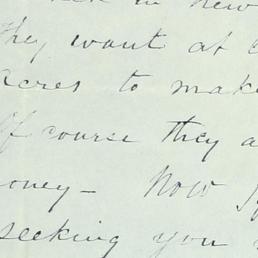 in new
they want at
acres to make
Of course they a
oney — Now
seeking you